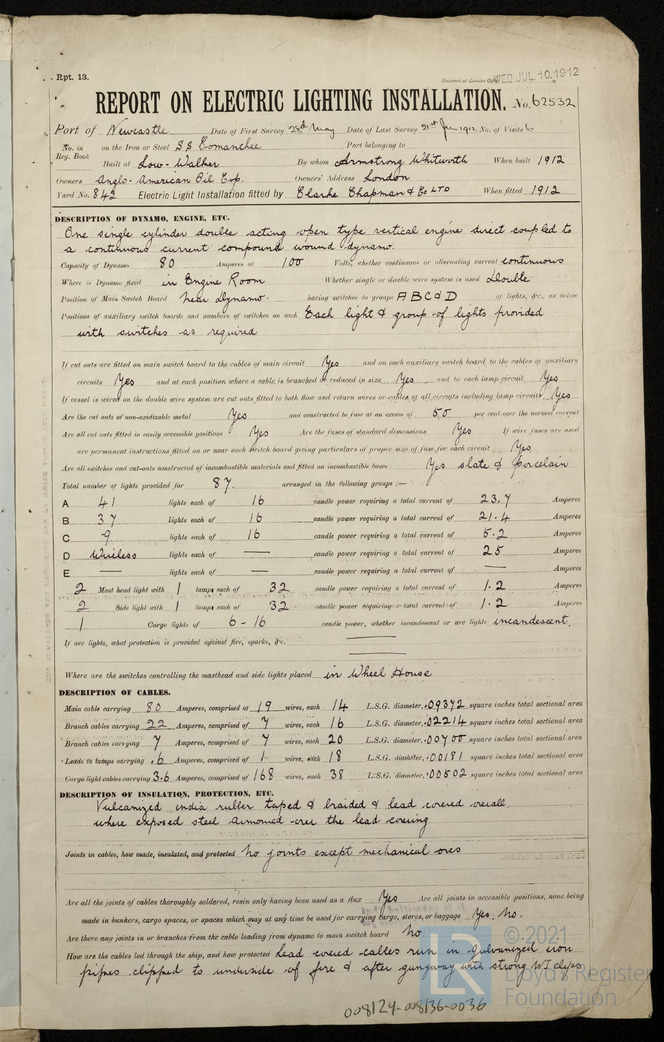 Rpt. 13.
WED. JUL. 10. 1912
REPORT ON ELECTRIC LIGHTING INSTALLATION. No. 62532
Port of Newcastle Date of First Survey 28th May Date of Last Survey 1912 No. of Visits 6
No. in Reg. Book on the Iron or Steel SS Comanchee Port belonging to
Built at Low-Walker By whom Armstrong Whitworth When built 1912
Owners Anglo-American Oil Cop. Owners' Address London
Yard No. 842 Electric Light Installation fitted by Clarke Chapman & Co LTD When fitted 1912
DESCRIPTION OF DYNAMO, ENGINE, ETC.
One single cylinder double acting open type vertical engine direct coupled to
a continuous current compound wound dynamo.
Capacity of Dynamo 80 Amperes at 100 Volts, whether continuous or alternating current continuous
Where is Dynamo fixed in Engine Room Whether single or double wire system is used Double
Position of Main Switch Board near Dynamo. having switches to groups A B C & D of lights, &c., as below
Positions of auxiliary switch boards and numbers of switches on each Each light & group of lights provided
with switches as required
If cut outs are fitted on main switch board to the cables of main circuit Yes and on each auxiliary switch board to the cables of auxiliary
circuits Yes and at each position where a cable is branched or reduced in size Yes and to each lamp circuit Yes
If vessel is wired on the double wire system are cut outs fitted to both flow and return wires or cables of all circuits including lamp circuits Yes
Are the cut outs of non-oxidizable metal Yes and constructed to fuse at an excess of 50 per cent over the normal current
Are all cut outs fitted in easily accessible positions Yes Are the fuses of standard dimensions Yes If wire fuses are used
are permanent instructions fitted on or near each switch board giving particulars of proper size of fuse for each circuit Yes
Are all switches and cut-outs constructed of incombustible materials and fitted on incombustible bases Yes slate & porcelain
Total number of lights provided for 87. arranged in the following groups :—
A 41 lights each of 16 candle power requiring a total current of 23.7 Amperes
B 37 lights each of 16 candle power requiring a total current of 21.4 Amperes
C 9 lights each of 16 candle power requiring a total current of 5.2 Amperes
D Wireless lights each of — candle power requiring a total current of 25 Amperes
E — lights each of — candle power requiring a total current of — Amperes
2 Mast head light with 1 lamps each of 32 candle power requiring a total current of 1.2 Amperes
2 Side light with 1 lamps each of 32 candle power requiring a total current of 1.2 Amperes
1 Cargo lights of 6-16 candle power, whether incandescent or arc lights incandescent.
If arc lights, what protection is provided against fire, sparks, &c. —
Where are the switches controlling the masthead and side lights placed in Wheel House
DESCRIPTION OF CABLES.
Main cable carrying 80 Amperes, comprised of 19 wires, each 14 L.S.G. diameter, .09372 square inches total sectional area
Branch cables carrying 22 Amperes, comprised of 7 wires, each 16 L.S.G. diameter, .02214 square inches total sectional area
Branch cables carrying 7 Amperes, comprised of 7 wires, each 20 L.S.G. diameter, .00700 square inches total sectional area
Leads to lamps carrying .6 Amperes, comprised of 1 wires, each 18 L.S.G. diameter, .00181 square inches total sectional area
Cargo light cables carrying 3.6 Amperes, comprised of 168 wires, each 38 L.S.G. diameter, .00502 square inches total sectional area
DESCRIPTION OF INSULATION, PROTECTION, ETC.
Vulcanized india rubber taped & braided & lead covered overall
where exposed steel armoured over the lead covering
Joints in cables, how made, insulated, and protected no joints except mechanical ones
Are all the joints of cables thoroughly soldered, resin only having been used as a flux Yes Are all joints in accessible positions, none being
made in bunkers, cargo spaces, or spaces which may at any time be used for carrying cargo, stores, or baggage Yes. No.
Are there any joints in or branches from the cable leading from dynamo to main switch board No
How are the cables led through the ship, and how protected Lead covered cables run in galvanized iron
pipes clipped to underside of fore & after gangway with strong W.I. clips
© 2021
Lloyd's Register
Foundation
008129-008136-0036